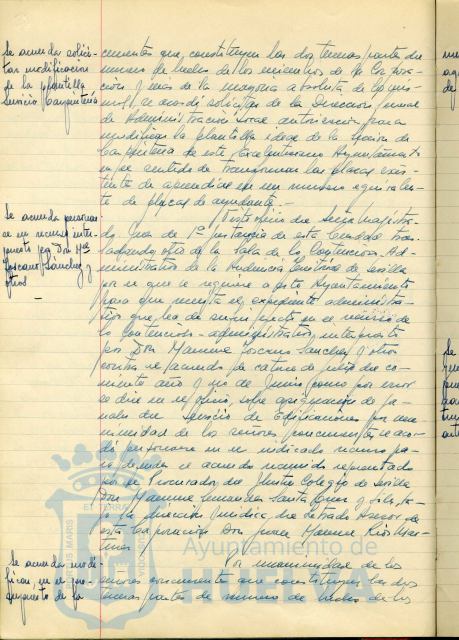 Se acuerda solici-
tar modificacion
de la plantilla
servicio Carpintería
currentes que constituyen las dos terceras partes del
numero de hecho de los miembros de la Corpora-
ción y mas de la mayoria absoluta de los mis-
mos, se acordó solicitar de la Direccion General
de Administracion Local autorizacion para
modificar la plantilla ideal de la Seccion de
Carpinteria de este Excelentisimo Ayuntamiento
en el sentido de transformar las plazas exis-
tentes de aprendices en un numero equivalen-
te de plazas de ayudante.
Se acuerda personar-
se en recurso inter-
puesto por Don Mel
Toscano Sánchez y
otros
Visto oficio del Señor Magistra-
do Juez de 1ª instancia de esta Ciudad tras-
ladando otro de la Sala de lo Contencioso Ad-
ministrativo de la Audiencia Territorial de Sevilla
por el que se requiere a este Ayuntamiento
para que remita el expediente administra-
tivo que ha de surtir efecto en el recurso
Contencioso-administrativo interpuesto
por Don Manuel Toscano Sanchez y otros
contra el acuerdo de catorce de julio del co-
rriente año y no de Junio como por error
se dice en el oficio, sobre asignacion de jor-
nales del servicio de Edificaciones por una-
nimidad de los señores concurrentes se acor-
dó personarse en el indicado recurso pa-
ra defender el acuerdo recurrido representado
por el Procurador del Ilustre Colegio de Sevilla
Don Manuel Santa Cruz y
la direccion Juridica del Letrado Asesor de
esta Corporación Don Juan Manuel Rios Mar-
tinez
Se acuerda modi-
ficar en el pre-
supuesto de la
Por unanimidad de los
señores concurrentes que constituyen las dos
terceras partes del numero de hecho de los
Ayuntamiento de
HUELVA